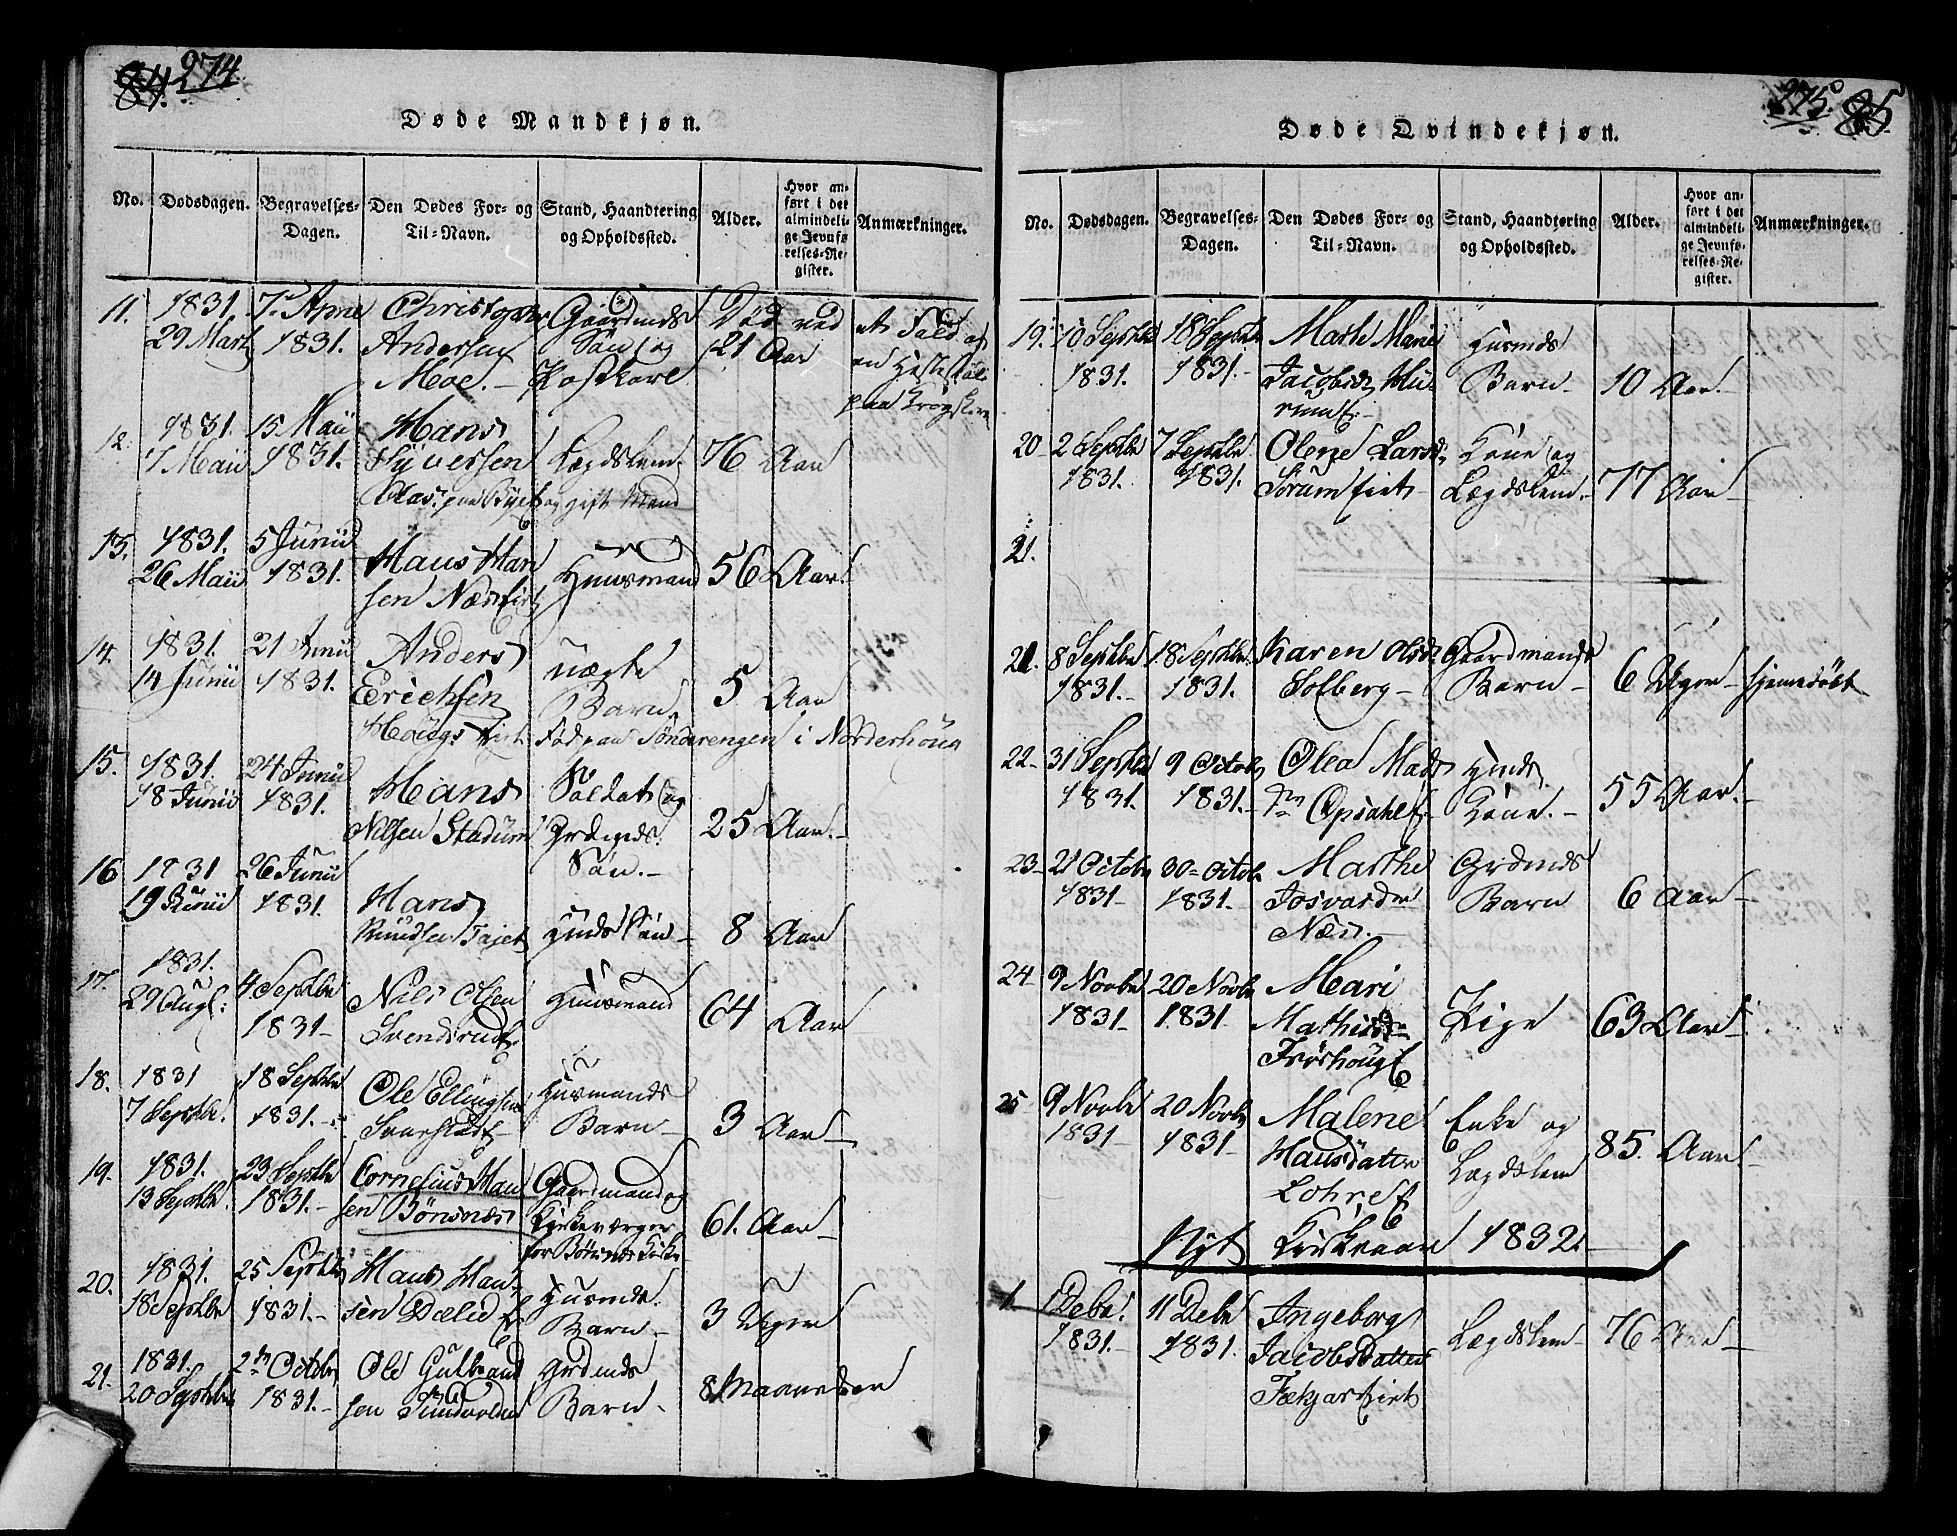 84. 274.
Døde Mandkjøn.
No. Dødsdagen. Begravelses-Dagen. Den Dødes For- og Til-Navn. Stand, Haandtering og Opholdssted. Alder. Hvor anført i det almindelige Jevnførelses-Register. Anmærkninger.
11. 1831. 7de April Christopher Gaardmds Død ved et Fald af
29 Marts 1831. Andersen Søn og 21 Aar en Hest
Moe. Postkarl paa Krogskoven
12. 1831. 15 Maii Hans
7 Maii 1831. Syversen Lægdslem 76 Aar
paa Byet og gift Mand
13. 1831. 5 Junii Hans Han
26 Maii 1831. sen Næs Huusmand 56 Aar.
14. 1831. 21 Junii Anders uægte
14 Junii 1831. Erichsen Barn. 5 Aar
Houg Fød paa Sønderengen i Norderhoug
15. 1831. 24 Junii Hans Soldat og
18 Junii 1831. Nilsen Stadum Grdmds 25 Aar.
Søn.
16 1831 26 Junii
19 Junii 1831. Hans
Knudsen Søn 8 Aar
17. 1831. 4 Septbr Nils Olsen Huusmand
29 Aug: 1831 Svendsrud 64 Aar
18. 1831 18 Septbr Ole Ellingsen Husmands
7 Septbr. 1831. Svarstad Barn 3 Aar
19. 1831. 23 Septbr Cornelius Han Gaardmand og
13 Septbr. 1831. sen Bønsnæs Kirkeværger 61. Aar
for Bønsnæs Kirke
20. 1831. 25 Septbr Hans Han Husmds
18 Septbr 1831. sen Dæli Barn 3 Uger
21. 1831. 2den October Ole Gulbrand Grdmds
20 Septbr 1831. sen Sundvolden Barn 8 Maaneder
275. 85.
Døde Qvindekjøn.
No. Dødsdagen. Begravelses-Dagen. Den Dødes For- og Til-Navn. Stand, Haandtering og Opholdssted. Alder. Hvor anført i det almindelige Jevnførelses-Register. Anmærkninger.
19. 10 Septbr 18 Septbr Marthe Marie Husmds
1831. 1831. Jacobsdr Barn 10 Aar.
20 2 Septbr 7 Septbr Olene Larsdr Kone og
1831. 1831. Sørum Lægdslem. 77 Aar
21.
21. 8 Septbr 18 Septbr. Karen Olsdr Gaardmands
1831. 1831. Solberg Barn 6 Uger hjemedøbt
22 31 Septbr 9 Octobr Olea Mads Hmds
1831. 1831. dr Opsahl Kone. 55 Aar.
23 21 Octobr 30 Octobr Marthe Grdmds
1831. 1831. Barn 6 Aar
Næs.
24 9 Novbr 20 Novbr Mari
1831 1831 Mathisdr Pige 63 Aar
Frøshoug
25 9 Novbr 20 Novbr Malene Enke og
1831 1831 Hansdatter Lægdslem 85. Aar
Lohre
Nyt Kirkeaar 1832.
1. 1 Debr. 11 Debr Ingeborg
1831. 1831. Jacobsdatter Lægdslem 76 Aar
Fækjær